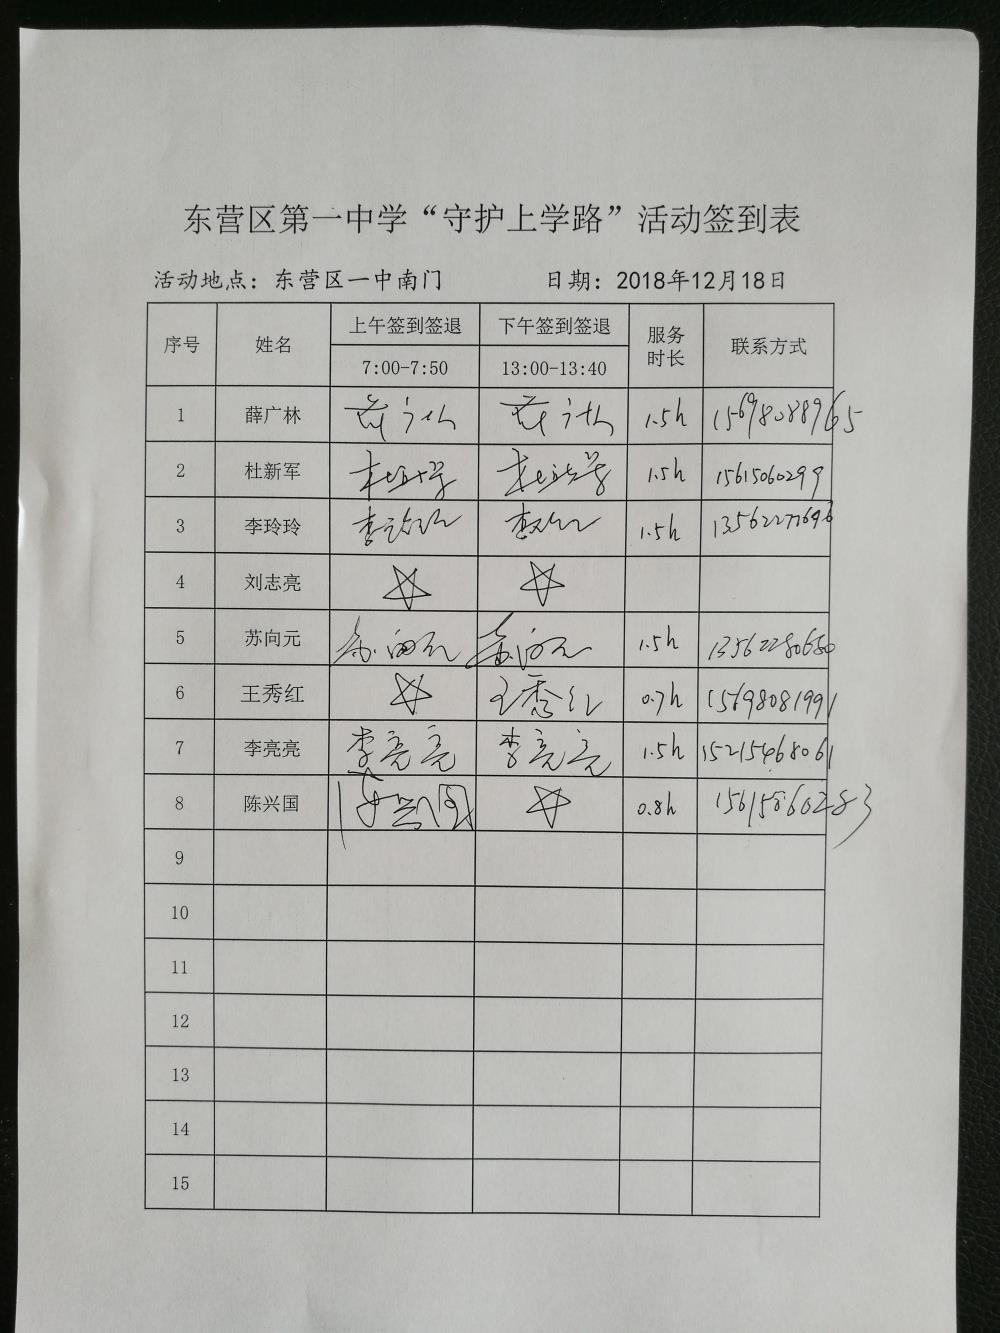 东营区第一中学“守护上学路”活动签到表
活动地点：东营区一中南门 日期：2018年12月18日
序号 姓名 上午签到签退 下午签到签退 服务时长 联系方式
7:00-7:50 13:00-13:40
1 薛广林 薛广林 薛广林 1.5h 15698088965
2 杜新军 1.5h 15615060299
3 李玲玲 李玲玲 李玲玲 1.5h 13562277696
4 刘志亮 ☆ ☆
5 苏向元 苏向元 苏向元 1.5h 13562280680
6 王秀红 ☆ 王秀红 0.7h 15698081991
7 李亮亮 李亮亮 李亮亮 1.5h 15215468061
8 陈兴国 陈兴国 ☆ 0.8h 15615860283
9
10
11
12
13
14
15